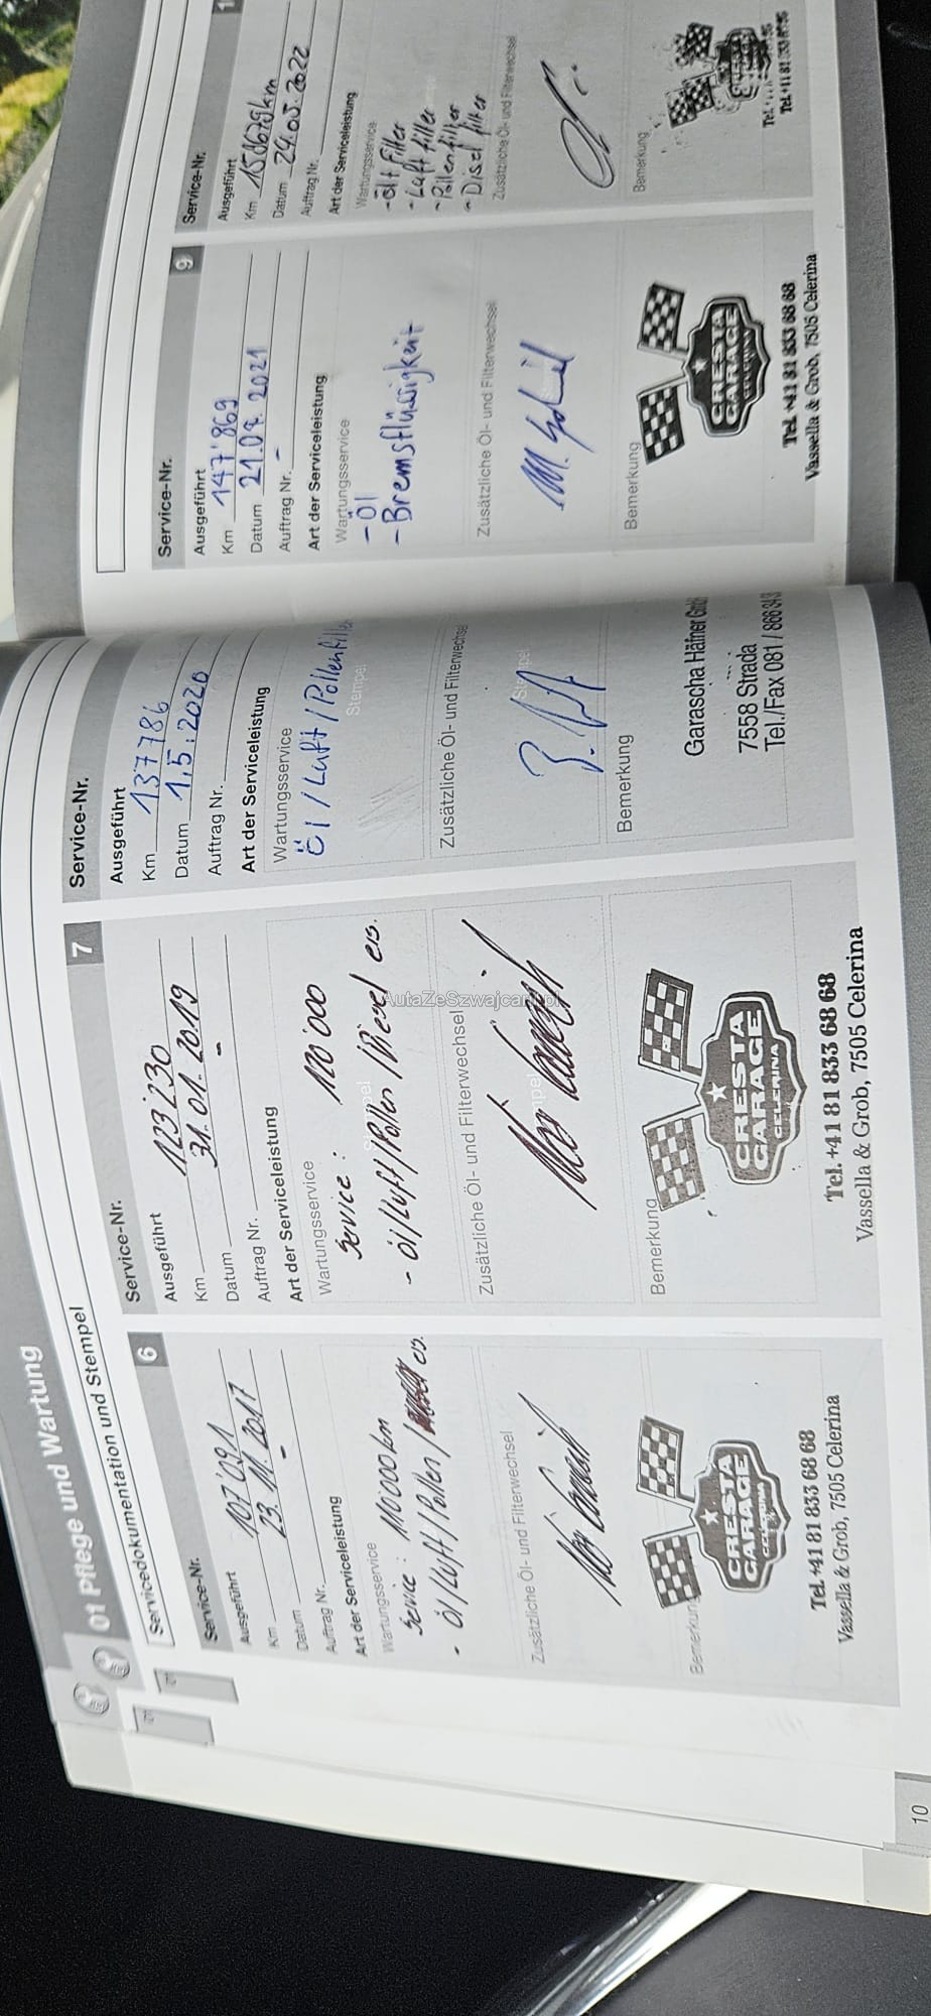 01 Pflege und Wartung
Servicedokumentation und Stempel
Service-Nr. 6
Ausgeführt
Km 107'091
Datum 23.11.2017
Auftrag Nr. -
Art der Serviceleistung
Wartungsservice
Service: 110'000 km
- Öl/Luft/Pollen/
Zusätzliche Öl- und Filterwechsel
Bemerkung
CRESTA
GARAGE
CELERINA
Tel. +41 81 833 68 68
Vassella & Grob, 7505 Celerina
Service-Nr. 7
Ausgeführt
Km 123'230
Datum 31.01.2019
Auftrag Nr. -
Art der Serviceleistung
Wartungsservice
Service: 120'000
- Öl/Luft/Pollen/Diesel
Zusätzliche Öl- und Filterwechsel
Bemerkung
CRESTA
GARAGE
CELERINA
Tel. +41 81 833 68 68
Vassella & Grob, 7505 Celerina
Service-Nr.
Ausgeführt
Km 137786
Datum 1.5.2020
Auftrag Nr.
Art der Serviceleistung
Wartungsservice
Öl/Luft/Pollenfilter
Stempel
Zusätzliche Öl- und Filterwechsel
Bemerkung
Garascha Häfner GmbH
7558 Strada
Tel./Fax 081 / 866
Service-Nr. 9
Ausgeführt
Km 147'869
Datum 21.07.2021
Auftrag Nr. -
Art der Serviceleistung
Wartungsservice
- Öl
- Bremsflüssigkeit
Zusätzliche Öl- und Filterwechsel
Bemerkung
CRESTA
GARAGE
CELERINA
Tel. +41 81 833 68 68
Vassella & Grob, 7505 Celerina
Service-Nr. 1
Ausgeführt
Km 156679km
Datum 24.05.2022
Auftrag Nr.
Art der Serviceleistung
Wartungsservice
- Öl + Filter
- Luft filter
- Pollenfilter
- Disel filter
Zusätzliche Öl- und Filterwechsel
Bemerkung
10
AutaZeSzwajcarii.pl